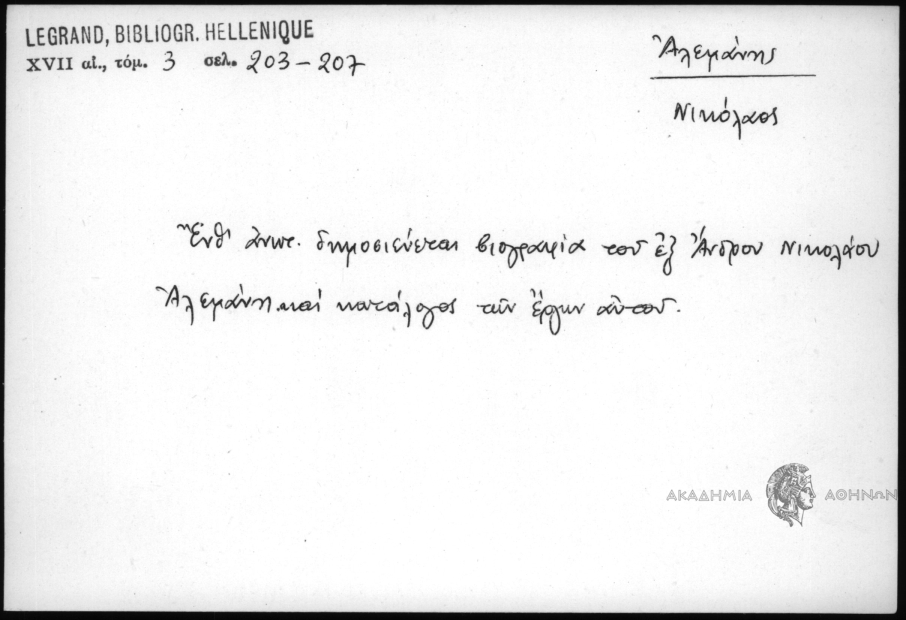 LEGRAND, BIBLIOGR. HELLENIQUE
XVII αἰ., τόμ. 3 σελ. 203-207
Ἀλεμάνης
Νικόλαος
Ἔνθ' ἀνωτ. δημοσιεύεται βιογραφία τοῦ ἐξ Ἄνδρου Νικολάου
Ἀλεμάνη καὶ κατάλογος τῶν ἔργων αὐτοῦ.
ΑΚΑΔΗΜΙΑ ΑΘΗΝΩΝ